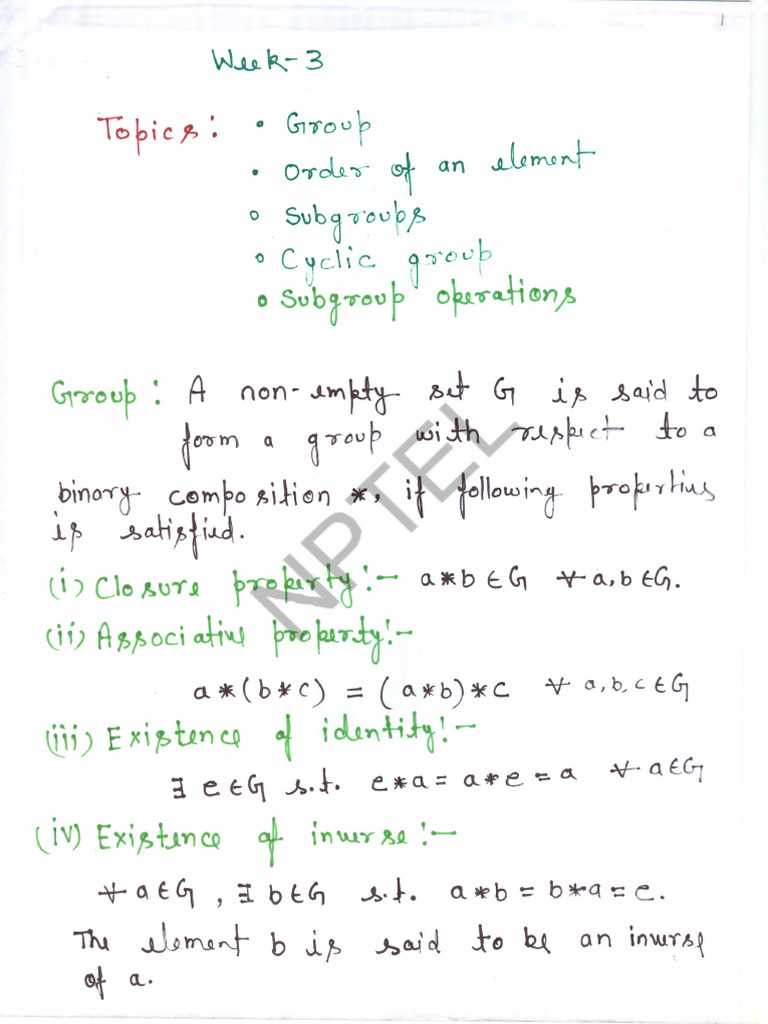 1
Week-3
Topics: • Group
• Order of an element
• Subgroups
• Cyclic group
• Subgroup operations
Group: A non-empty set G is said to
form a group with respect to a
binary composition *, if following properties
is satisfied.
(i) Closure property:- a*b∈G ∀ a,b∈G.
(ii) Associative property:-
a*(b*c) = (a*b)*c ∀ a,b,c∈G
(iii) Existence of identity:-
∃ e∈G s.t. e*a = a*e = a ∀ a∈G
(iv) Existence of inverse:-
∀ a∈G, ∃ b∈G s.t. a*b = b*a = e.
The element b is said to be an inverse
of a.
NPTEL